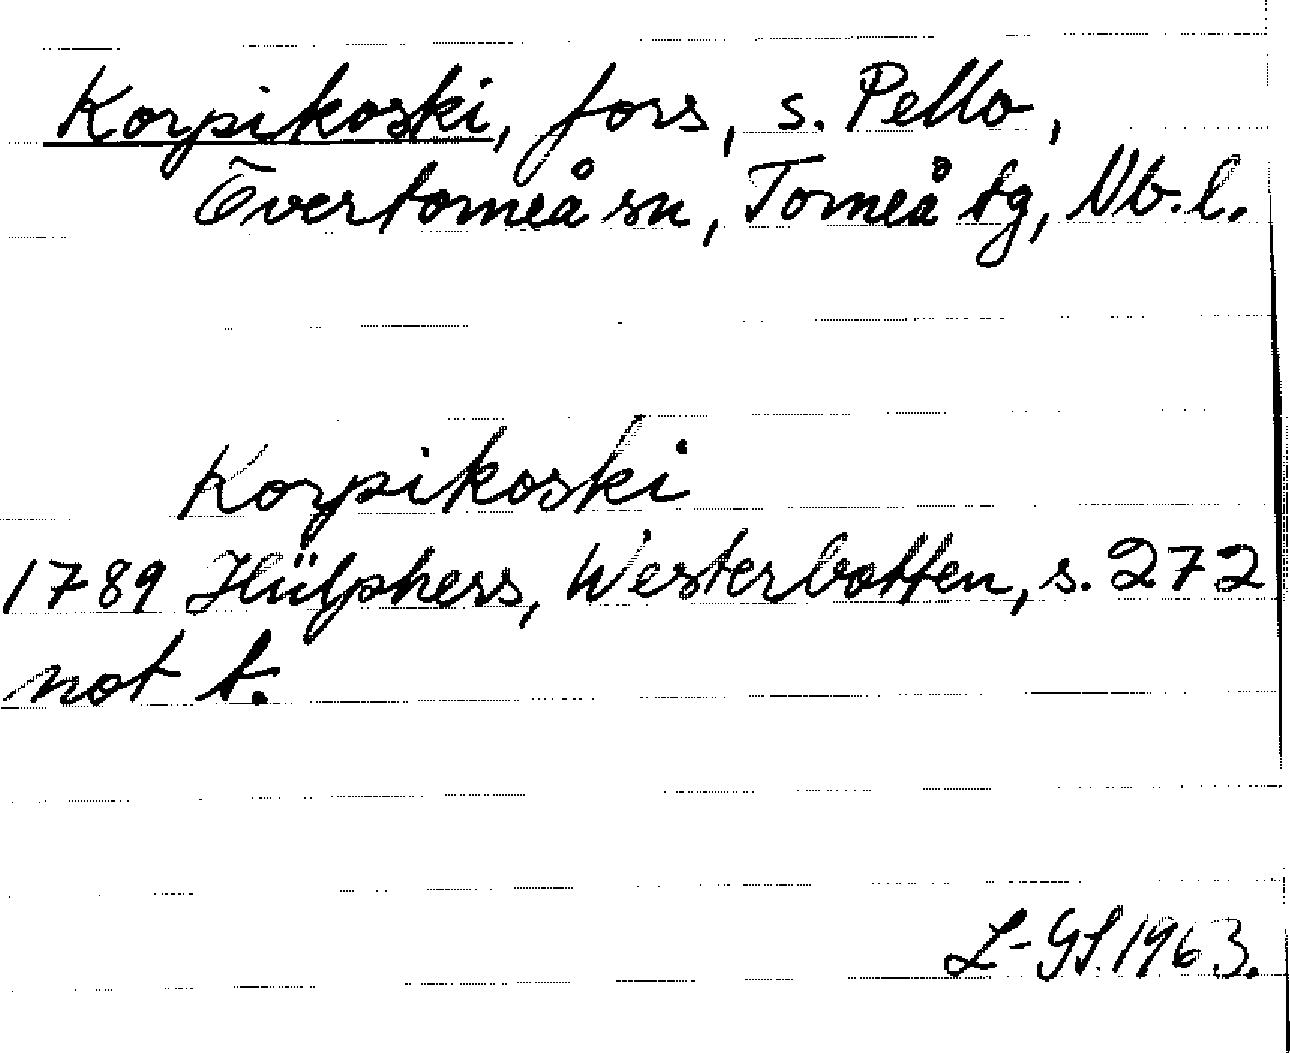 Korpikoski, fors, s. Pello,
Övertorneå sn, Torneå tg, Nb. l.
Korpikoski
1789 Hülphers, Westerbotten, s. 272
not t.
L-GS. 1963.